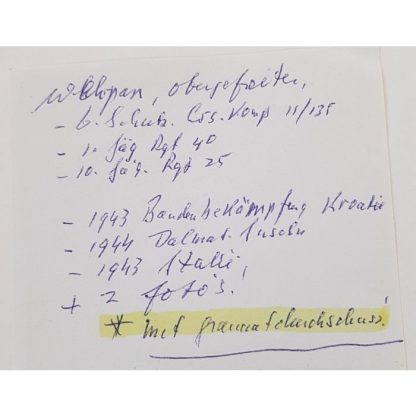 Obergefreiter,
- 6. Schutz. Ers. Komp 11/135
- 1. Jäg Rgt 40
- 10. Jäg. Rgt 25
- 1943 Bandenbekämpfung Kroatie
- 1944 Dalmat. Inseln
- 1943 Italië,
+ 2 foto's.
* mit grannatdurchschuss!